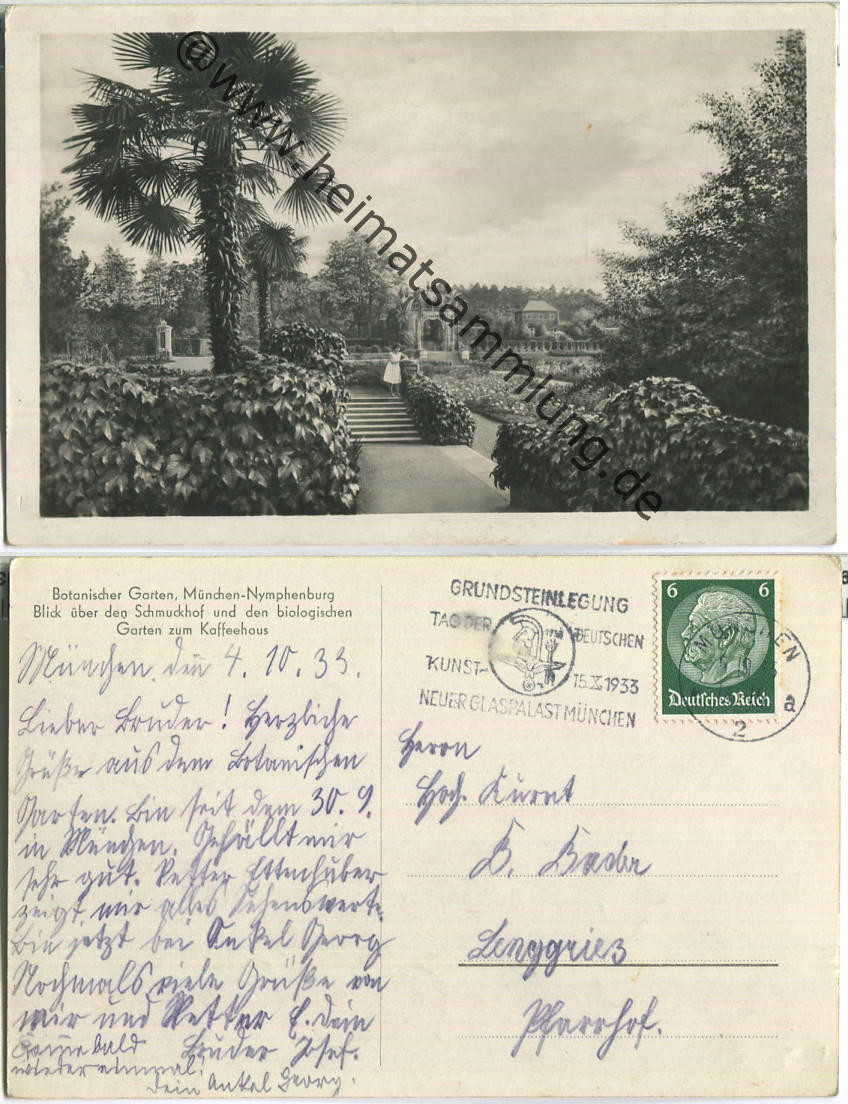 @www.heimatsammlung.de
Botanischer Garten, München-Nymphenburg
Blick über den Schmuckhof und den biologischen
Garten zum Kaffeehaus
München, den 4. 10. 33.
Lieber Bruder! Herzliche
Grüße aus dem Botanischen
Garten. Bin seit dem 30. 9.
in München. Gefällt mir
sehr gut. Vetter Ettenhuber
zeigt mir alles Sehenswerte.
Bin jetzt bei Onkel Georg
Nochmals viele Grüße von
mir und Vetter E. Dein
Bruder Josef.
Komme bald
wieder einmal.
Dein Onkel Georg.
GRUNDSTEINLEGUNG
TAG DER DEUTSCHEN
KUNST- 15.X.1933
NEUER GLASPALAST MÜNCHEN
6 6
Deutsches Reich
MÜNCHEN
2 a
Herrn
Hoch.
B. Bader
Lenggries
Pfarrhof.